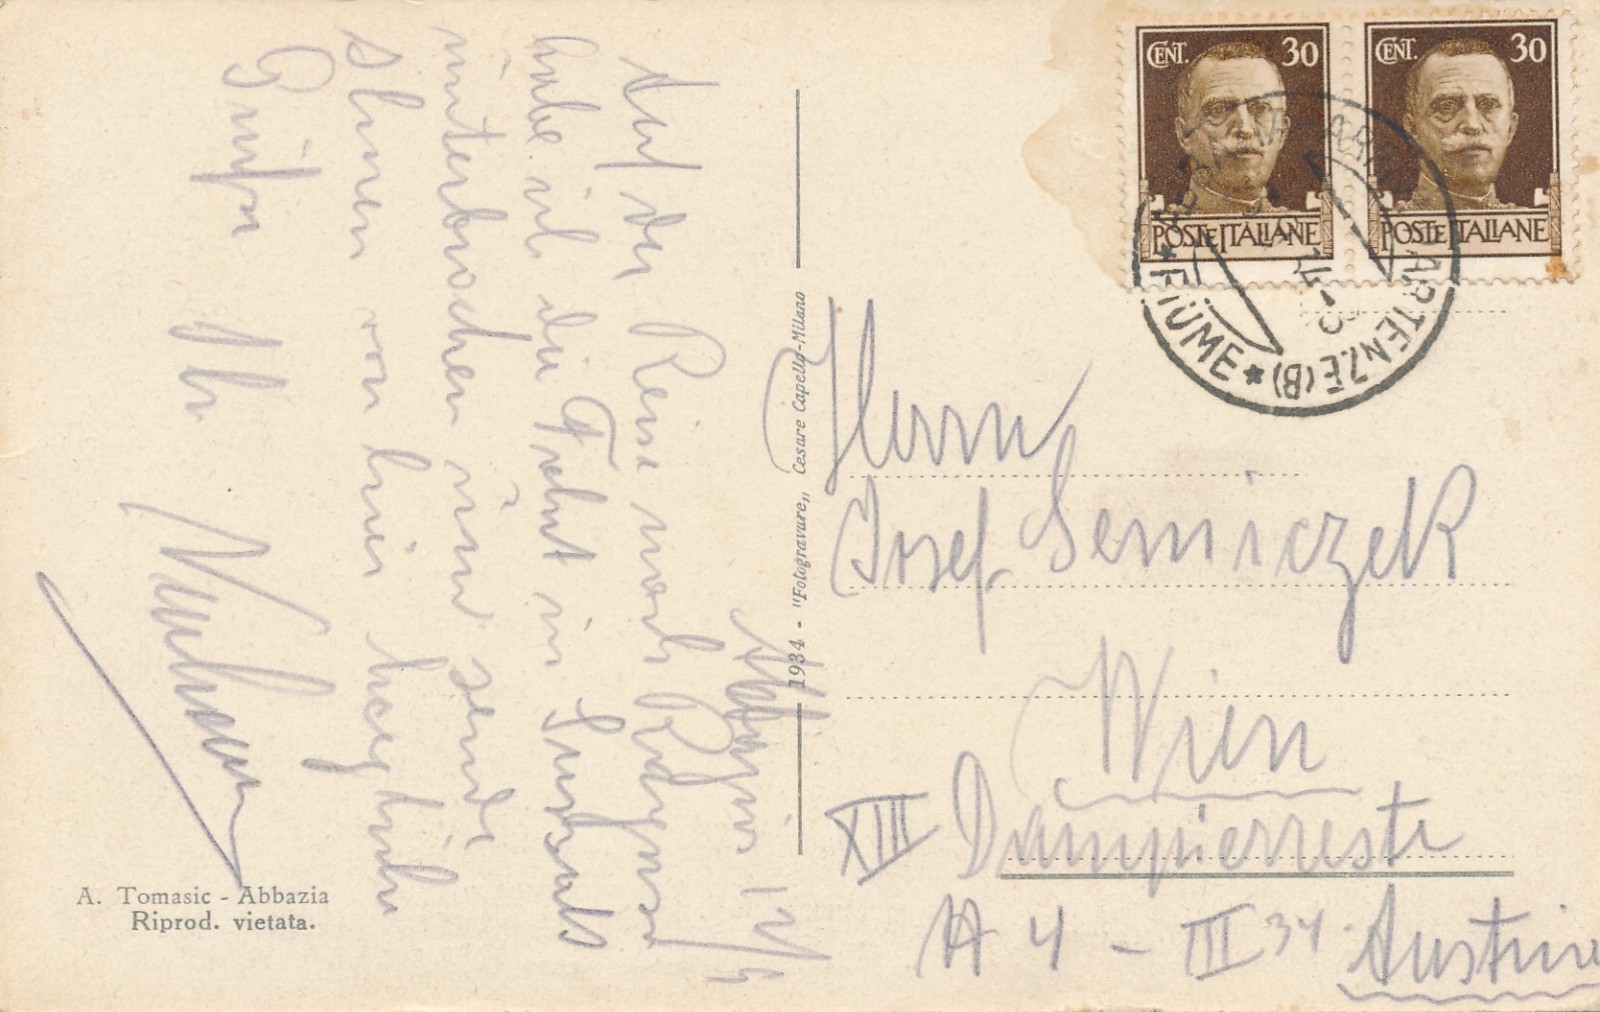 CENT. 30
POSTE ITALIANE
CENT. 30
POSTE ITALIANE
ARTENZE (B)
* FIUME *
14-8
Abbazia 12/5
Auf der Reise nach Ragusa
habe ich die Fahrt in
unterbrochen und sende
Ihnen von hier herzliche
Grüße
Ihr
1934 - "Fotogravure,, Cesare Capello-Milano
Herrn
Josef Semiczek
Wien
XIII Dampierrestr
A 4 - III 34. Austria
A. Tomasic - Abbazia
Riprod. vietata.